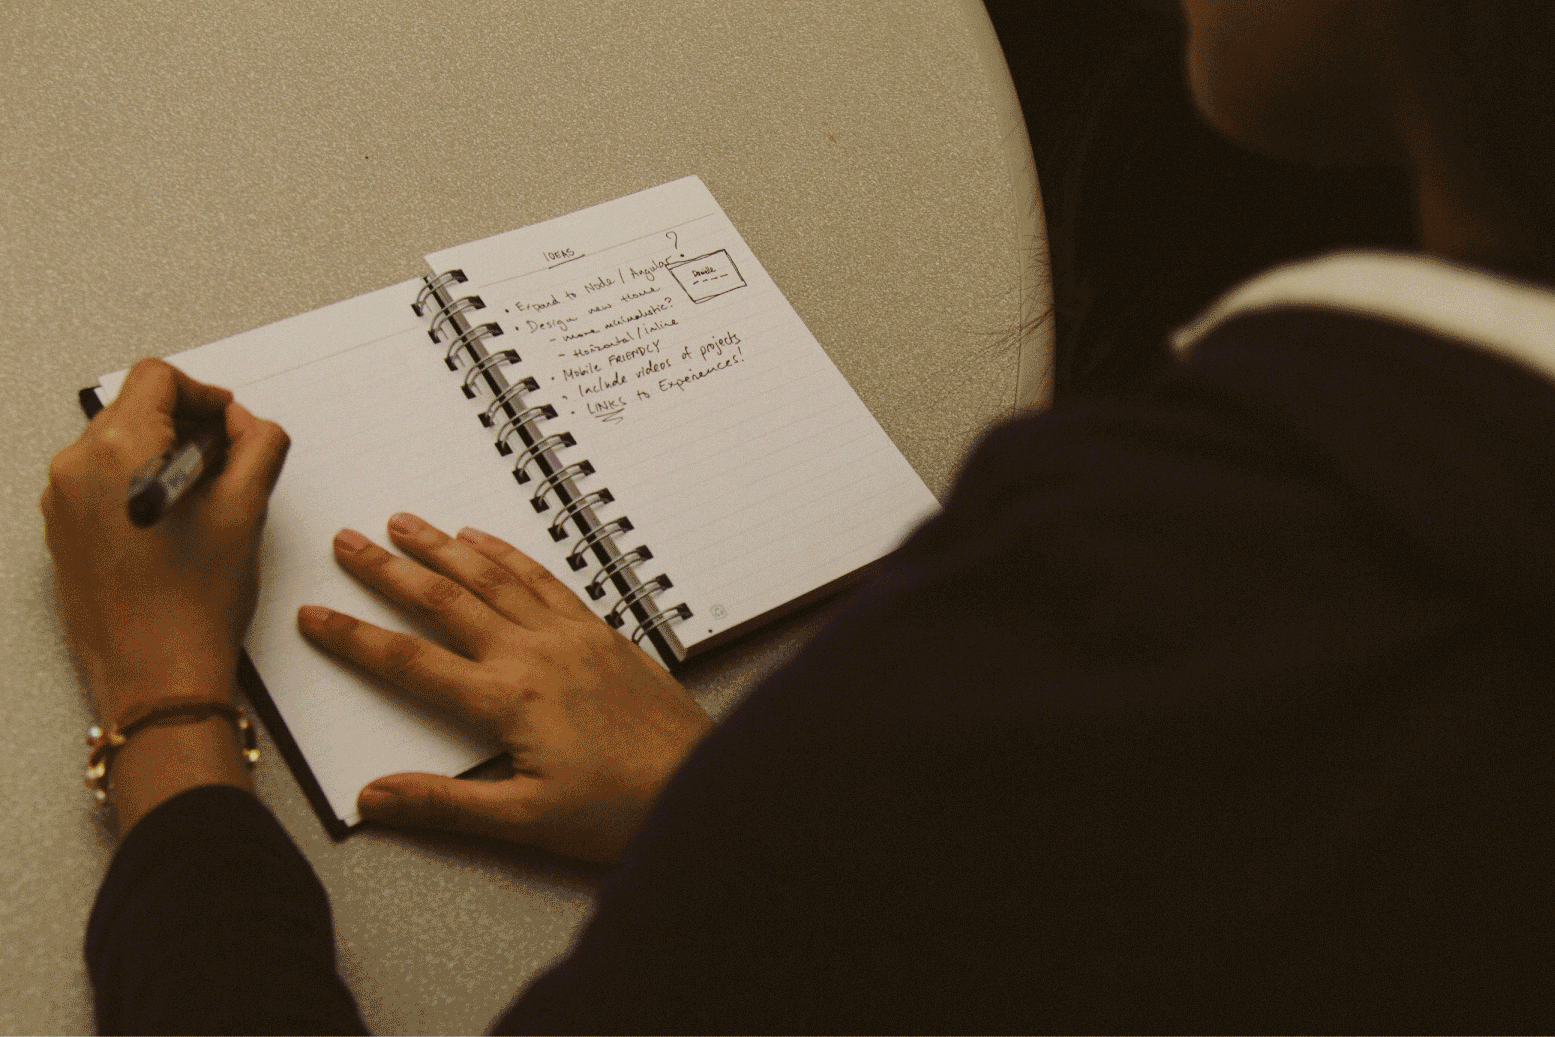 IDEAS
?
• Expand to Node / Angular
• Design new Home
- more minimalistic?
- Horizontal/inline
• Mobile FRIENDLY
• Include videos of projects
• LINKS to Experiences!